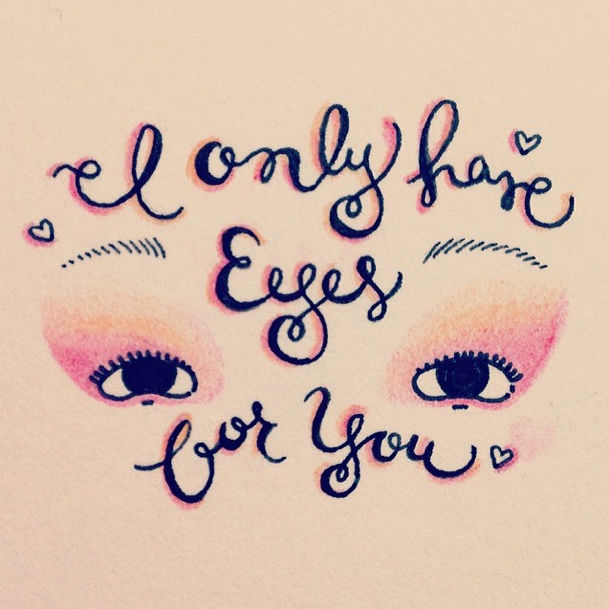 I only have
Eyes
for You